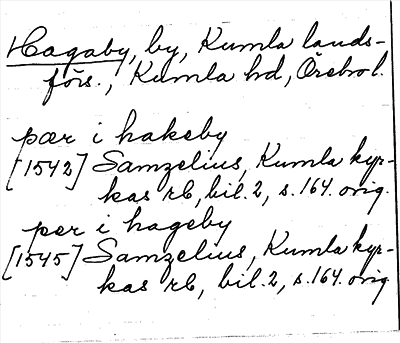 Hagaby, by, Kumla lands-
förs., Kumla hd, Örebro l.
pær i hakeby
[1542] Samzelius, Kumla kyr-
kas rb, bil. 2, s. 164. orig.
per i hageby
[1545] Samzelius, Kumla kyr-
kas rb, bil. 2, s. 164. orig.